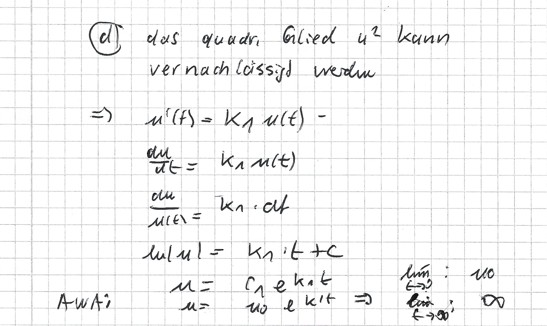 d) das quadr. Glied u² kann
vernachlässigt werden
⇒ u'(t) = k₁ u(t) -
du/dt = k₁ u(t)
du/u(t) = k₁ · dt
ln|u| = k₁ · t + c
u = c₁ e^k₁t
AWA: u = u₀ e^k₁t ⇒ lim t→0 : u₀
lim t→∞ : ∞